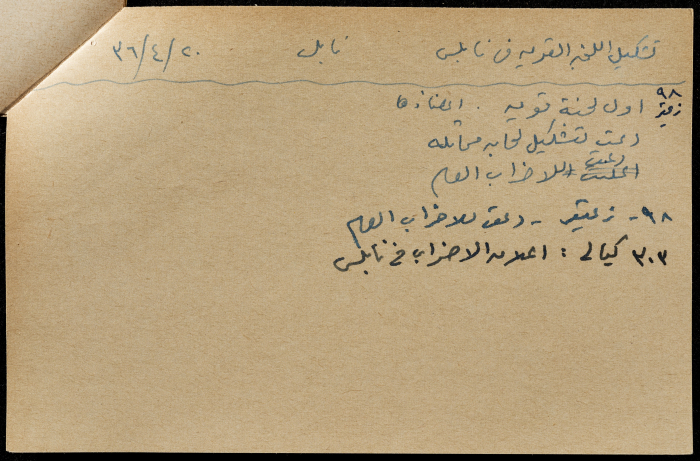 تشكيل اللجنه القوميه في نابلس نابلس ٣٦/٤/٢٠
٩٨ زعيتر اول لجنة قوميه . اعضاؤها
دعت لتشكيل لجان مماثله
اعلنت دعت للاضراب العام
٩٨ - زعيتر - دعوة للاضراب العام
٣٠٣ كيالي : اعلان الاضراب في نابلس